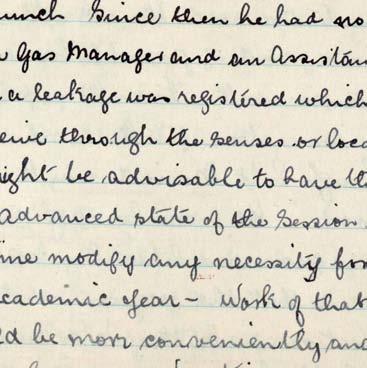 unch Since then he had no
Gas Manager and an Assistan
a leakage was registered which
eive through the senses or loca
ight be advisable to have th
advanced state of the Session
ime modify any necessity for
cademic Year - Work of that
ld be more conveniently and